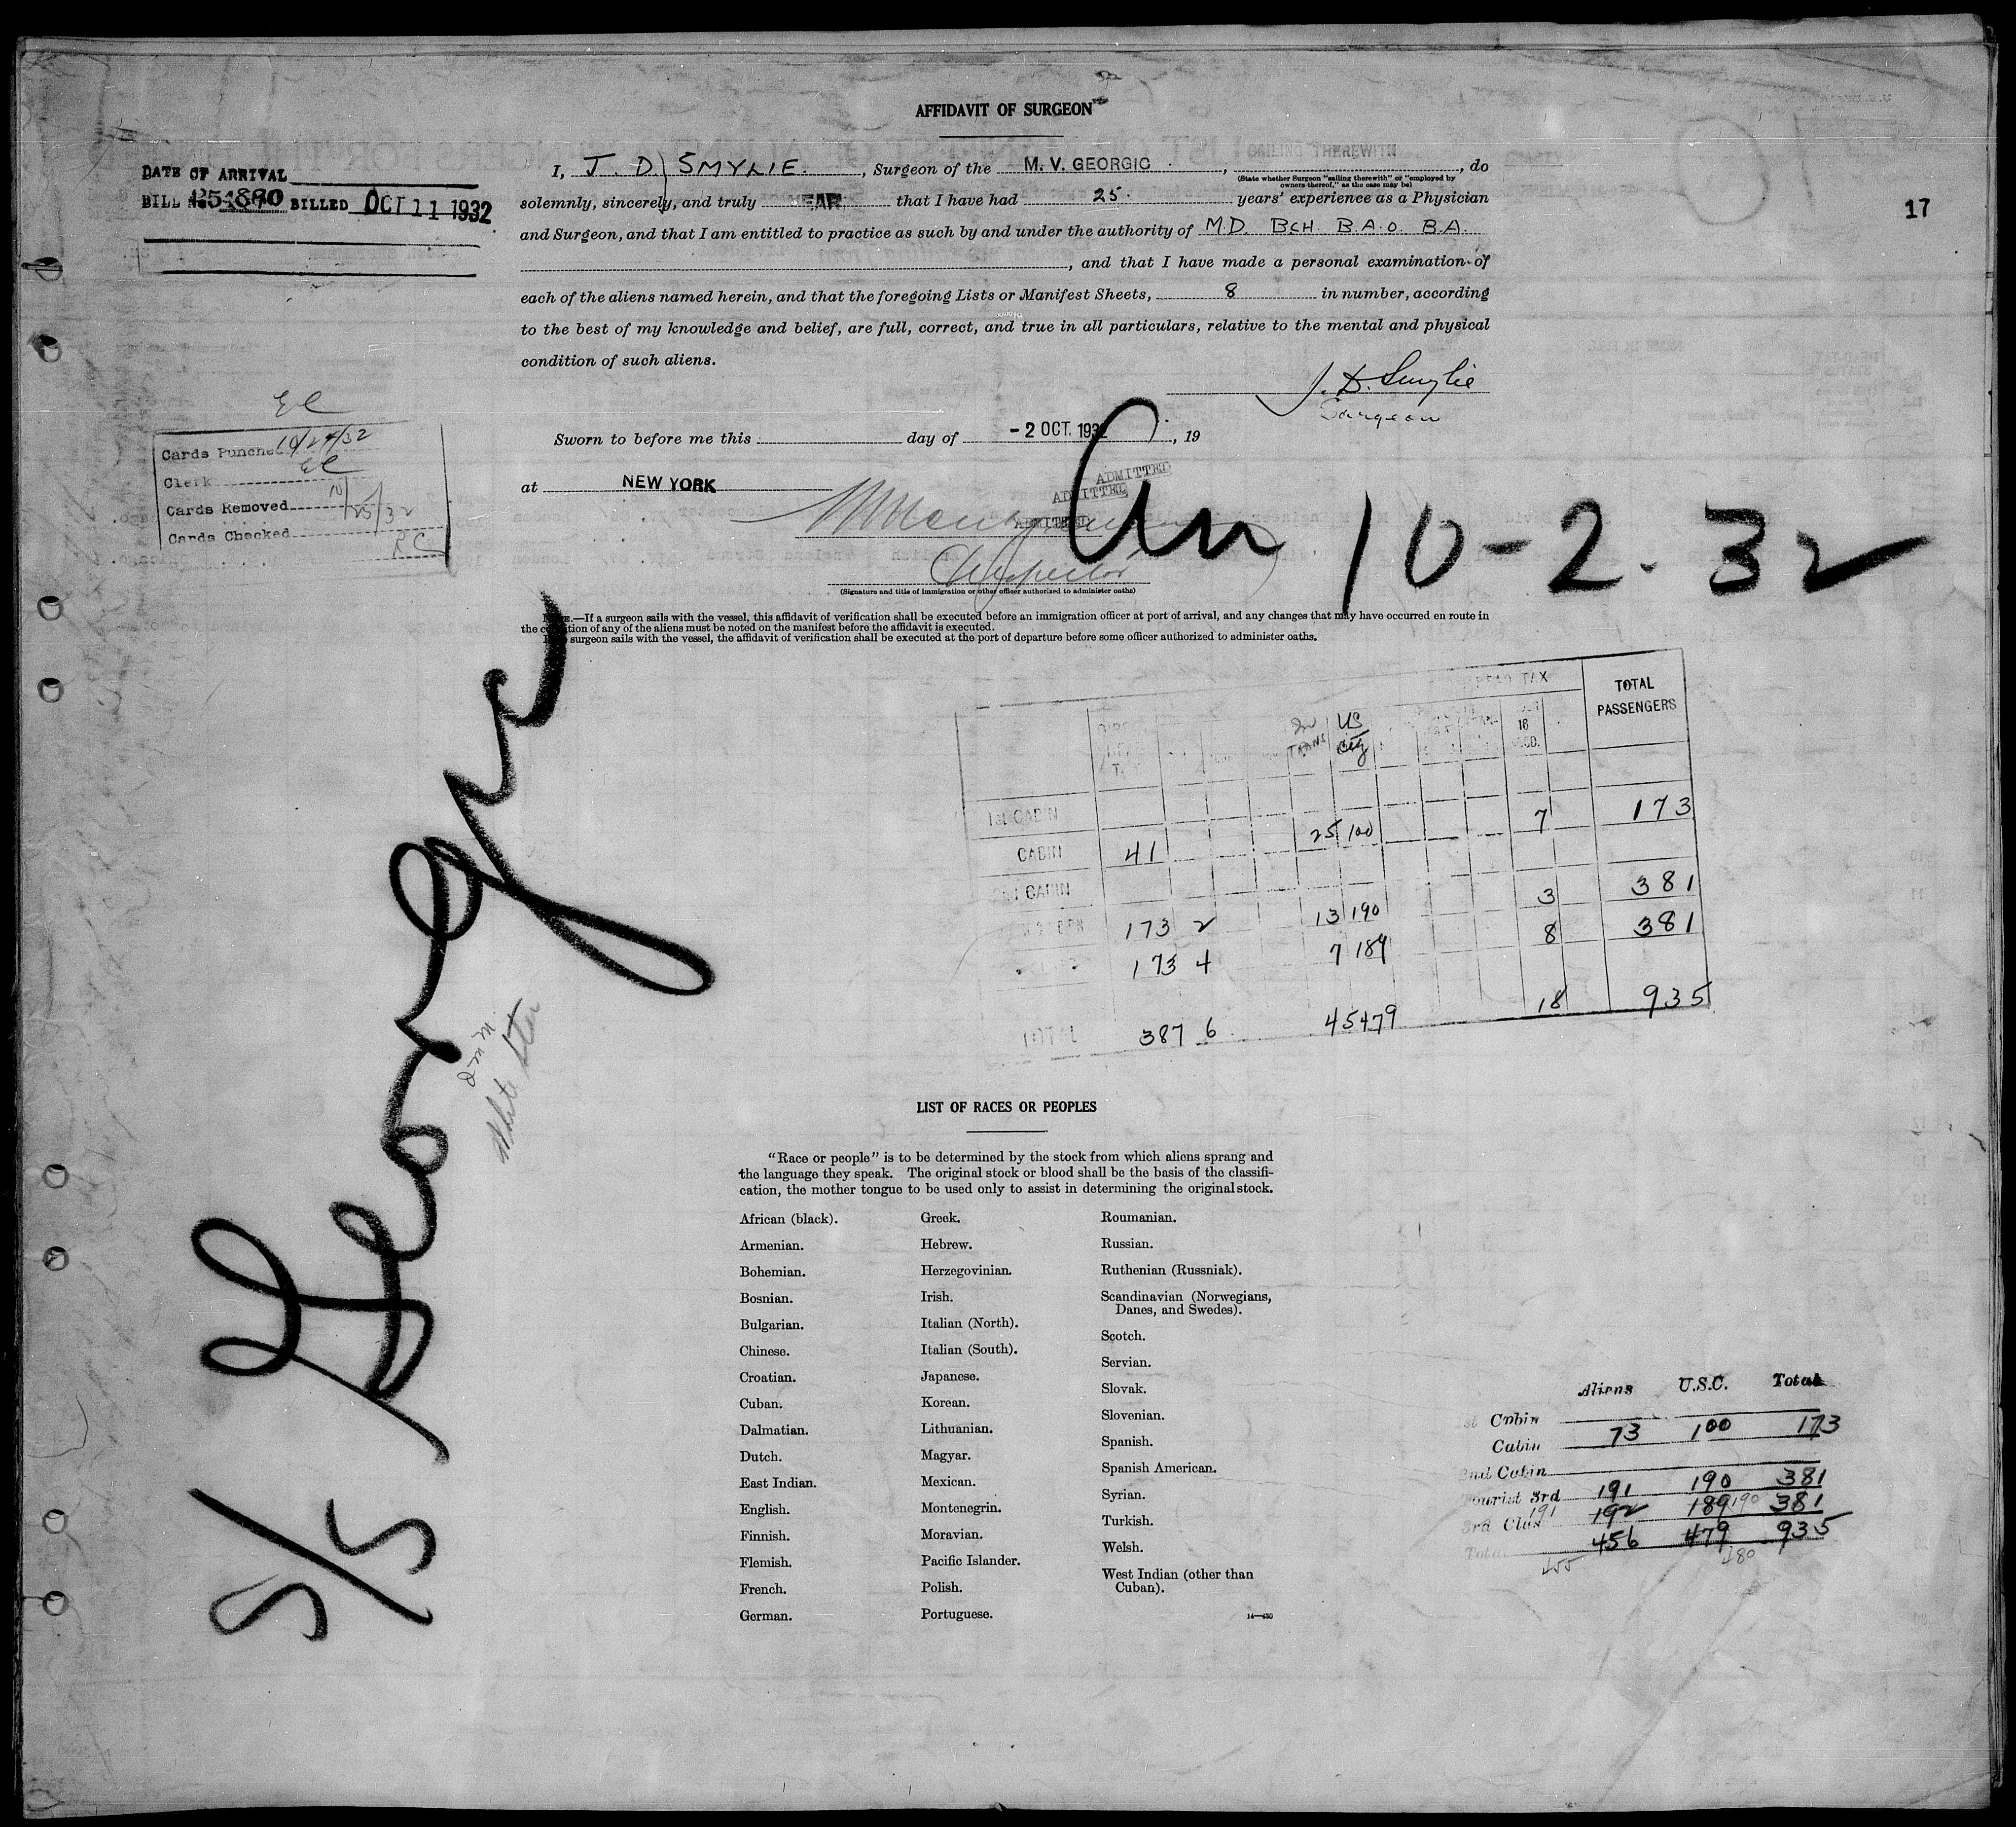 AFFIDAVIT OF SURGEON
DATE OF ARRIVAL
BILL No. BILLED OCT 11 1932
17
I, J. D. SMYLIE., Surgeon of the M. V. GEORGIC, SAILING THEREWITH, do
(State whether Surgeon "sailing therewith" or "employed by
owners thereof," as the case may be)
solemnly, sincerely, and truly SWEAR that I have had 25. years' experience as a Physician
and Surgeon, and that I am entitled to practice as such by and under the authority of M.D. BCH. B.A.O. B.A.
, and that I have made a personal examination of
each of the aliens named herein, and that the foregoing Lists or Manifest Sheets, 8 in number, according
to the best of my knowledge and belief, are full, correct, and true in all particulars, relative to the mental and physical
condition of such aliens.
J. D. Smylie
Surgeon
Sworn to before me this day of -2 OCT. 1932, 19
at NEW YORK
ADMITTED
ADMITTED
ADMITTED
Inspector
(Signature and title of immigration or other officer authorized to administer oaths)
Arr 10-2-32
Cards Punched 10/24/32
Clerk
Cards Removed 10/25/32
Cards Checked RC
NOTE.—If a surgeon sails with the vessel, this affidavit of verification shall be executed before an immigration officer at port of arrival, and any changes that may have occurred en route in
the condition of any of the aliens must be noted on the manifest before the affidavit is executed.
surgeon sails with the vessel, the affidavit of verification shall be executed at the port of departure before some officer authorized to administer oaths.
S/S Georgic
White Star
HEAD TAX
TOTAL PASSENGERS
In TRANS US Citz 16
1st CABIN
CABIN 41 25 100 7 173
2nd CABIN
173 2 13 190 3 381
173 4 7 189 8 381
TOTAL 387 6 45 479 18 935
LIST OF RACES OR PEOPLES
"Race or people" is to be determined by the stock from which aliens sprang and
the language they speak. The original stock or blood shall be the basis of the classifi-
cation, the mother tongue to be used only to assist in determining the original stock.
African (black).
Armenian.
Bohemian.
Bosnian.
Bulgarian.
Chinese.
Croatian.
Cuban.
Dalmatian.
Dutch.
East Indian.
English.
Finnish.
Flemish.
French.
German.
Greek.
Hebrew.
Herzegovinian.
Irish.
Italian (North).
Italian (South).
Japanese.
Korean.
Lithuanian.
Magyar.
Mexican.
Montenegrin.
Moravian.
Pacific Islander.
Polish.
Portuguese.
Roumanian.
Russian.
Ruthenian (Russniak).
Scandinavian (Norwegians,
Danes, and Swedes).
Scotch.
Servian.
Slovak.
Slovenian.
Spanish.
Spanish American.
Syrian.
Turkish.
Welsh.
West Indian (other than
Cuban).
14—430
Aliens U.S.C. Total
st Cabin
Cabin 73 100 173
2nd Cabin
Tourist 3rd 191 190 381
3rd Class 191 192 189 190 381
Total 456 479 935
455 480